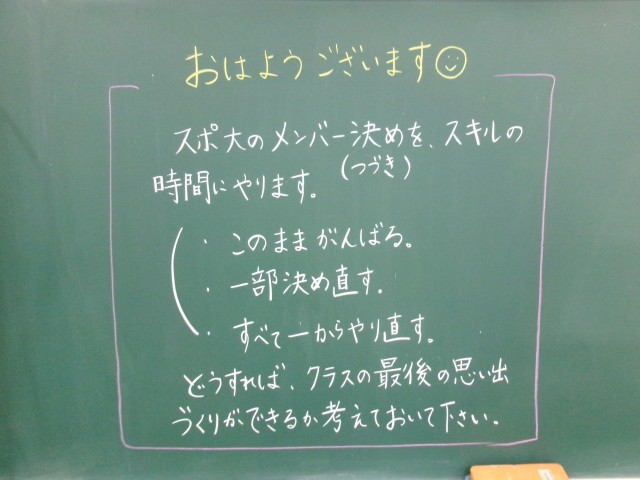 おはようございます☺
スポ大のメンバー決めを、スキルの
(つづき)
時間にやります。
・このままがんばる。
・一部決め直す。
・すべて一からやり直す。
どうすれば、クラスの最後の思い出
づくりができるか考えておいて下さい。